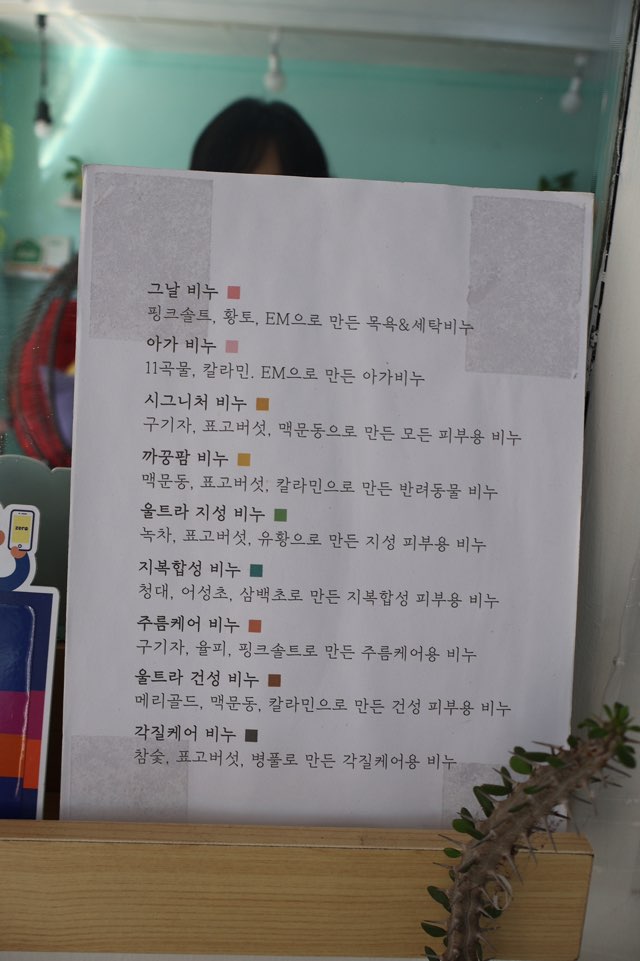 그날 비누
핑크솔트, 황토, EM으로 만든 목욕&세탁비누
아가 비누
11곡물, 칼라민. EM으로 만든 아가비누
시그니처 비누
구기자, 표고버섯, 맥문동으로 만든 모든 피부용 비누
까꿍팜 비누
맥문동, 표고버섯, 칼라민으로 만든 반려동물 비누
울트라 지성 비누
녹차, 표고버섯, 유황으로 만든 지성 피부용 비누
지복합성 비누
청대, 어성초, 삼백초로 만든 지복합성 피부용 비누
주름케어 비누
구기자, 율피, 핑크솔트로 만든 주름케어용 비누
울트라 건성 비누
메리골드, 맥문동, 칼라민으로 만든 건성 피부용 비누
각질케어 비누
참숯, 표고버섯, 병풀로 만든 각질케어용 비누
zero